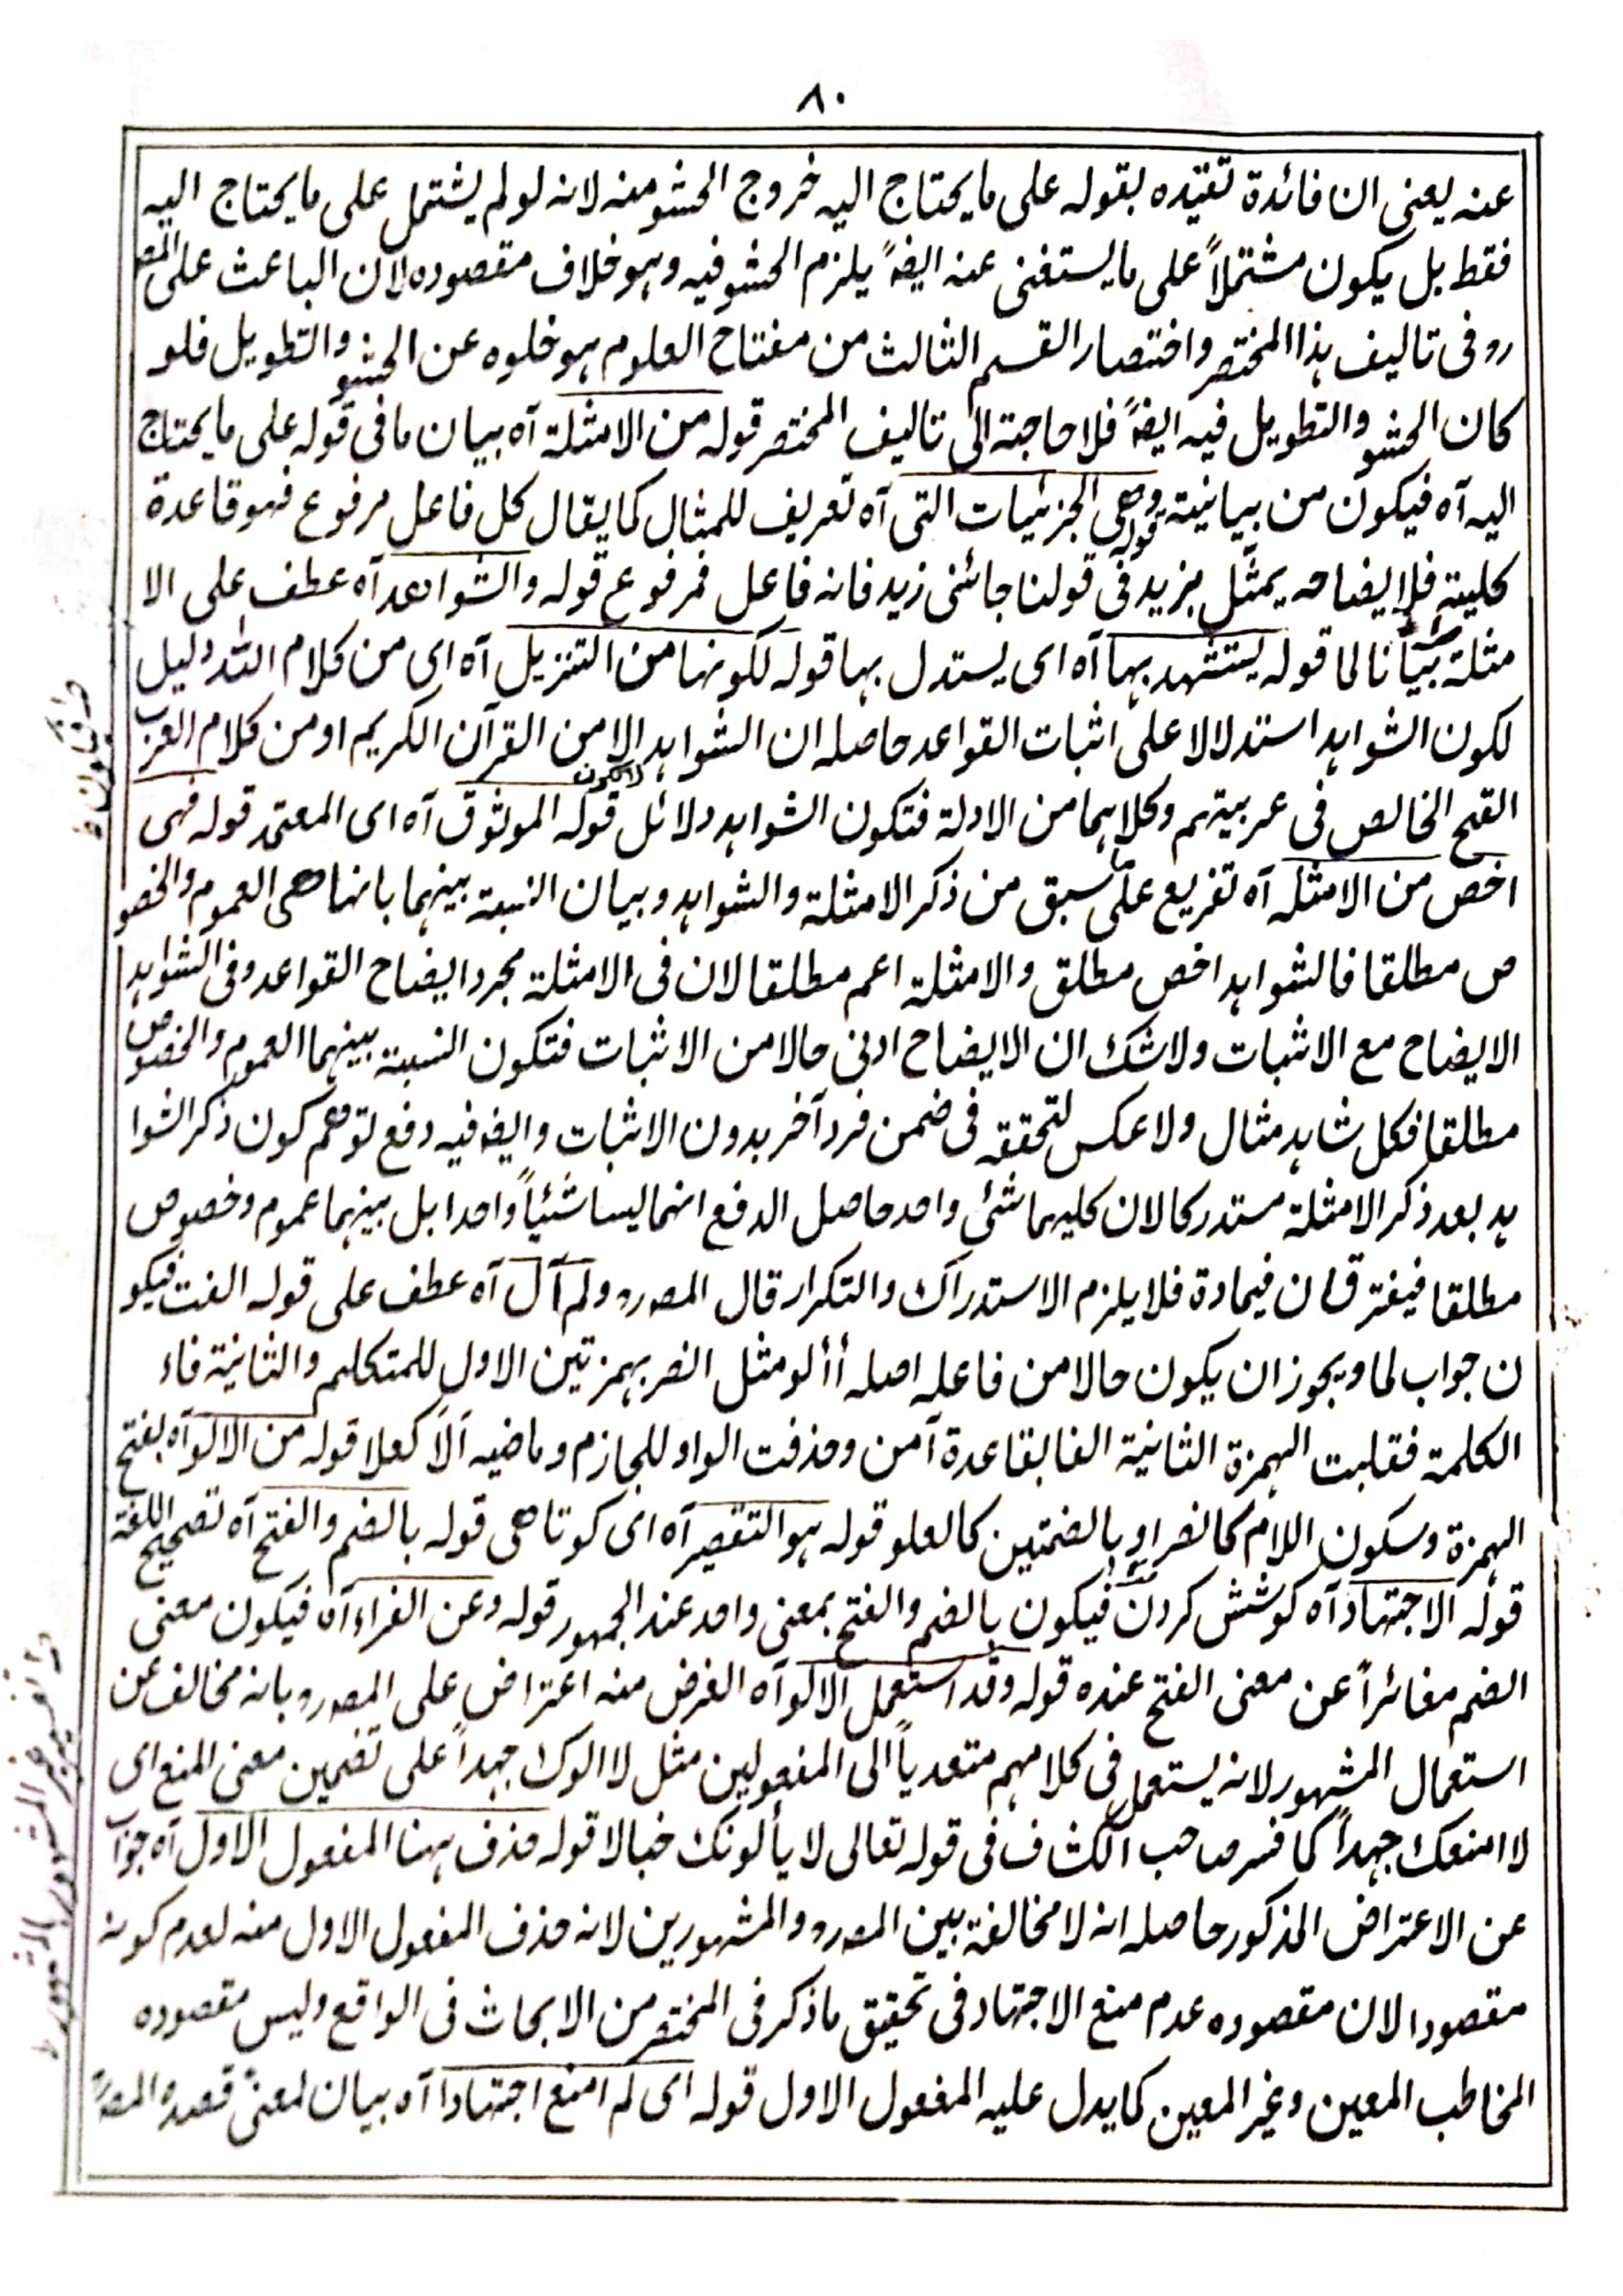 ٨٠
عنه يعنى ان فائدة تقيده بقوله على ما يحتاج اليه خروج الحشو منه لانه لو لم يشتمل على ما يحتاج اليه
فقط بل يكون مشتملاً على ما يستغنى عنه ايضاً يلزم الحشو فيه وهو خلاف مقصوده لان الباعث على المصـ
رو فى تاليف هذا المختصر واختصار القسم الثالث من مفتاح العلوم هو خلوه عن الحشو والتطويل فلو
كان الحشو والتطويل فيه ايضاً فلا حاجة الى تاليف المختصر قوله من الامثلة آه بيان ما فى قوله على ما يحتاج
اليه آه فيكون من بيانية قوله وهى الجزئيات التى آه تعريف للمثال كما يقال كل فاعل مرفوع فهو قاعدة
كلية فلايضاحه يمثّل بزيد فى قولنا جائنى زيد فانه فاعل فمرفوع قوله والشواهد آه عطف على الا
مثلة بيانا لما قوله يستشهد بها آه اى يستدل بها قوله لكونها من التنزيل آه اى من كلام الله دليل
لكون الشواهد استدلالا على اثبات القواعد حاصله ان الشواهد لا يكون الا من القرآن الكريم او من كلام العرب
القح الخالص فى عربيتهم وكلاهما من الادلة فتكون الشواهد دلائل قوله الموثوق آه اى المعتمد قوله فهى
اخص من الامثلة آه تفريع على ما سبق من ذكر الامثلة والشواهد وبيان النسبة بينهما بانها هى العموم والخصو
ص مطلقا فالشواهد اخص مطلق والامثلة اعم مطلقا لان فى الامثلة مجرد ايضاح القواعد وفى الشواهد
الايضاح مع الاثبات ولا شك ان الايضاح ادنى حالا من الاثبات فتكون النسبة بينهما العموم والخصوص
مطلقا فكل شاهد مثال ولا عكس لتحققه فى ضمن فرد آخر بدون الاثبات وايضا فيه دفع توهم كون ذكر الشوا
هد بعد ذكر الامثلة مستدركا لان كليهما شئى واحد حاصل الدفع انهما ليسا شئياً واحدا بل بينهما عموم وخصوص
مطلقا فيفترقان فيمادة فلا يلزم الاستدراك والتكرار قال المصـ رو ولم آل آه عطف على قوله الفت فيكو
ن جواب لما ويجوز ان يكون حالا من فاعله اصله أألو مثل انصر بهمزتين الاول للمتكلم والثانية فاء
الكلمة فقلبت الهمزة الثانية الفا بقاعدة آمن وحذفت الواو للجازم وماضيه اَلاَ كعلا قوله من الالو آه بفتح
الهمزة وسكون اللام كالنصر او بالضمتين كالعلو قوله هو التقصير آه اى كوتاهى قوله بالضم والفتح آه تصحيح اللغة
قوله الاجتهاد آه كوشش كردن فيكون بالضم والفتح بمعنى واحد عند الجمهور قوله وعن الفراء آه فيكون معنى
الضم مغائراً عن معنى الفتح عنده قوله وقد استعمل الالو آه الغرض منه اعتراض على المصـ رو بانه مخالف عن
استعمال المشهور لانه يستعمل فى كلامهم متعدياً الى المفعولين مثل لا الوك جهداً على تضمين معنى المنع اى
لا امنعك جهداً كما فسر صاحب الكشاف فى قوله تعالى لا يألونكم خبالا قوله حذف ههنا المفعول الاول آه جواب
عن الاعتراض المذكور حاصله انه لا مخالفة بين المصـ رو والمشهورين لانه حذف المفعول الاول منه لعدم كونه
مقصودا لان مقصوده عدم منع الاجتهاد فى تحقيق ما ذكر فى المختصر من الابحاث فى الواقع وليس مقصوده
المخاطب المعين وغير المعين كما يدل عليه المفعول الاول قوله اى لم امنع اجتهادا آه بيان لمعنى قصده المصـ